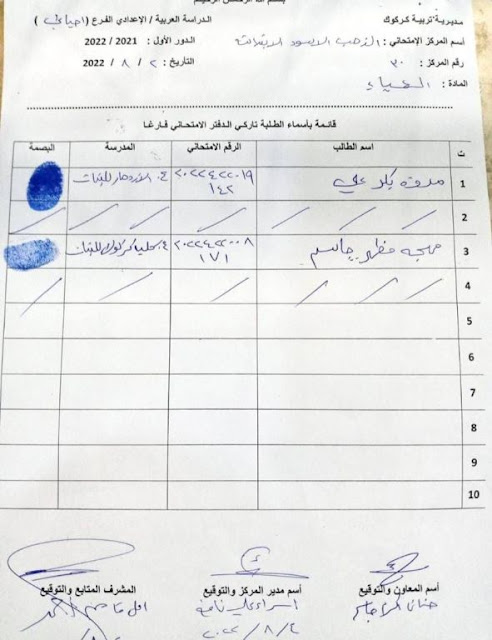 بسم الله الرحمن الرحيم
مديرية تربية كركوك
الدراسة العربية / الإعدادي الفرع ( احيائي )
أسم المركز الإمتحاني : الذهب الاسود الابتدائية
الدور الأول : 2021 / 2022
رقم المركز : ٣٠
التاريخ : ٢ / ٨ / 2022
المادة : الكيمياء
قائمة بأسماء الطلبة تاركي الدفتر الامتحاني فارغا
ت اسم الطالب الرقم الامتحاني المدرسة البصمة
1 مروة بكر علي ٢٠٢٢٤٢٢٠١٩ ١٤٢ ع. الازدهار للبنات
2
3 مهجه مظهر جاسم ٢٠٢٢٤٢٢٠٠٨ ١٧١ ع. كركوك للبنات
4
5
6
7
8
9
10
أسم المعاون والتوقيع
أسم مدير المركز والتوقيع
المشرف المتابع والتوقيع
حنان
اسراء علي
٢ / ٨ / ٢٠٢٢